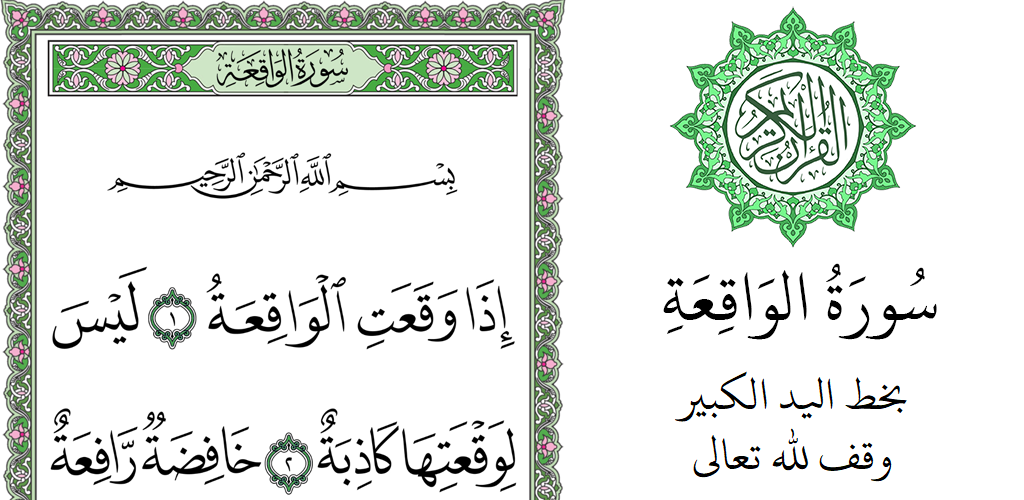 سُورَةُ الوَاقِعَةِ
بِسْمِ ٱللَّهِ ٱلرَّحْمَٰنِ ٱلرَّحِيمِ
إِذَا وَقَعَتِ ٱلْوَاقِعَةُ ١ لَيْسَ
لِوَقْعَتِهَا كَاذِبَةٌ ٢ خَافِضَةٌ رَّافِعَةٌ
القرآن الكريم
سُورَةُ الوَاقِعَةِ
بخط اليد الكبير
وقف لله تعالى